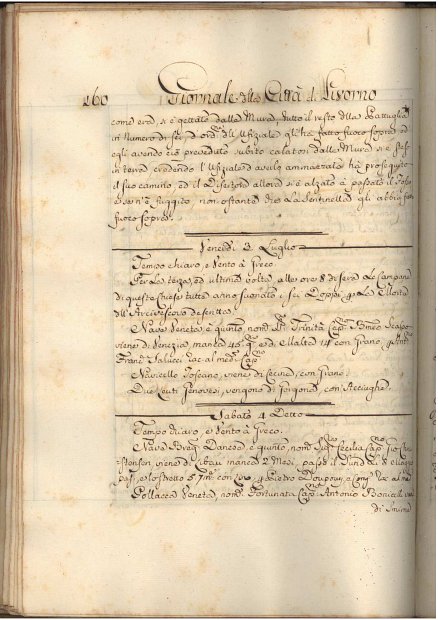 260 Giornale della Città di Livorno
come era, si è gettato dalle Mura, tutto il resto della Pattuglia
in numero di sei d'ord. dell'Ufiziale gli ha fatto fuoco sopra, ed
egli avendo ciò preveduto subito calatosi dalle Mura si è steso
in terra credendo l'Ufiziale d'averlo ammazzato ha proseguito
il suo camino, ed il Disertore allora si è alzato à passato il Fosso
e se n'è fuggito non ostante che La Sentinella gli abbia fatto
fuoco sopra.
Venerdì 3 Luglio
Tempo chiaro, e Vento à Greco.
Per La terza, ed ultima volta alle ore 8 di sera Le Campane
di queste Chiese tutte anno suonato i sei Doppi p. La Morte
dell'Arcivescovo descritta.
Nave Veneta, è quinto, nom. SS. Trinità Cap. Bmeo
viene di Venezia, manca 45 g. e di Malta 14 con Grano, p.
Franc. Salucci rac. al med. Cap.
Navicello Toscano, viene di Cecina, con Grano.
Due Leuti Genovesi, vengono di Gorgona, con Acciughe.
Sabato 4 Detto
Tempo chiaro, e Vento à Greco.
Nave Danese, è quinto, nom. Cecilia Cap.
viene di Libau manca 2 Mesi, passò il Sund
e lo stretto p. Pietro e Comp. rac. al med.
Pollacca Veneta, nom. Fortunata Cap. Antonio
di Smirne